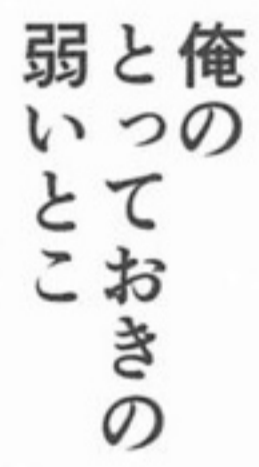 俺の
とっておきの
弱いとこ